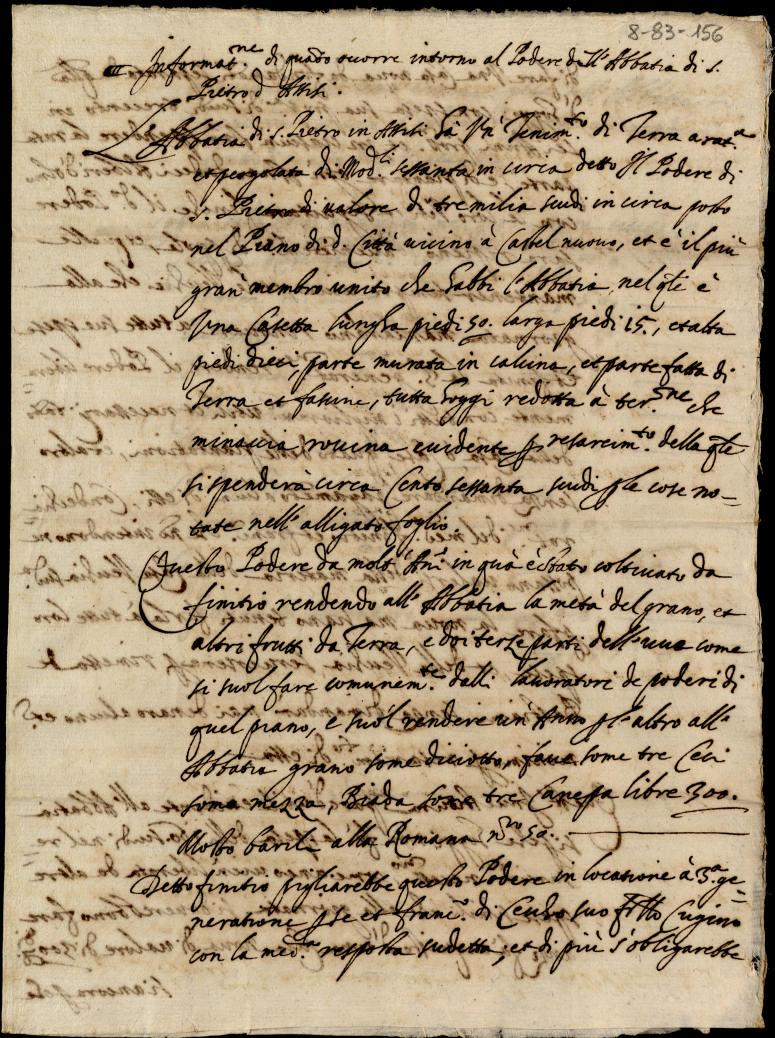 8-83-156
Informat.ne di quãto ocorre intorno al Podere dell'Abbatia di s.
Pietro d' Attili.
L'Abbatia di s. Pietro in Attili hà Un' Tenim.to di Terra arat.a
et pergolata di Mod.li sessanta in circa detto Il Podere di
s. Pietro di valore di tremilia scudi in circa posto
nel Piano di d. Città vicino à Castel nuovo, et è il più
gran' membro unito che habbi l'Abbatia, nel qle è
Una Casetta lungha piedi 50. larga piedi 15., et alta
piedi dieci, parte murata in calcina, et parte fatta di
Terra et fassine, tutta hoggi redotta à ter.ne che
minaccia rovina evidente p resarcim.to della qle
si spenderà circa Cento sessanta scudi p le cose no-
tate nell'alligato foglio.
Questo Podere da molt' Anni in quà è stato coltivato da
finitio rendendo all'Abbatia la metà del grano, et
altri frutti da Terra, e doi terze parti dell'uve come
si suol fare comunem.te dalli lavoratori de poderi di
quel piano, e suol rendere un' Anno p l'altro all'
Abbatia grano some diciotto, fave some tre Ceci
soma mezza, Biada some tre Canepa libre 300.
Mosto barili alla Romana n.ro 50.
Detto finitio pigliarebbe questo Podere in locatione à 3.a ge=
neratione p se et franc.o di suo Cugino
con la med.a resposta sudetta, et di più s'obligarebbe